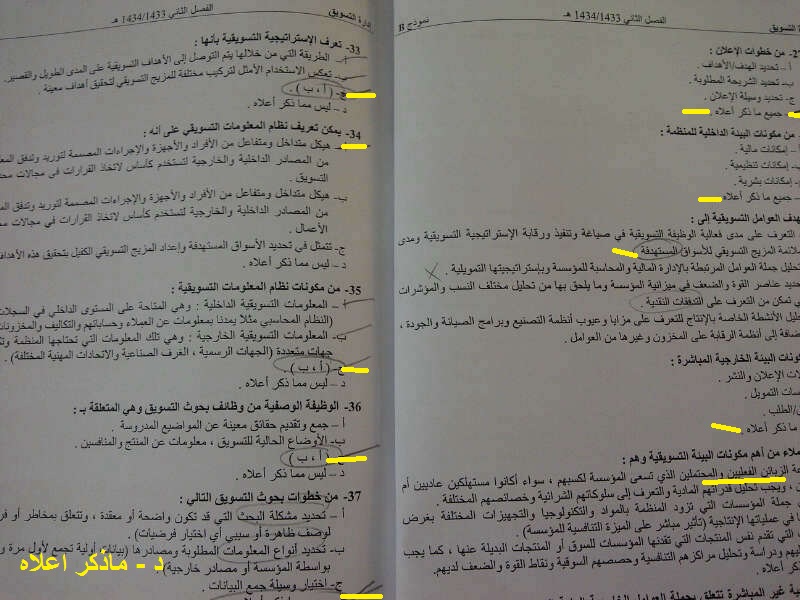 الفصل الثاني 1434/1433 هـ
نموذج B
من خطوات الإعلان :
أ – تحديد الهدف/الأهداف .
ب- تحديد الشريحة المطلوبة .
ج- تحديد وسيلة الإعلان .
جميع ما ذكر أعلاه .
من مكونات البيئة الداخلية للمنظمة :
أ – إمكانات مالية .
ب- إمكانات تنظيمية .
إمكانات بشرية .
جميع ما ذكر أعلاه .
هدف العوامل التسويقية إلى :
التعرف على مدى فعالية الوظيفة التسويقية في صياغة وتنفيذ ورقابة الإستراتيجية التسويقية ومدى
المزيج التسويقي للأسواق المستهدفة .
تحليل جملة العوامل المرتبطة بالإدارة المالية والمحاسبة للمؤسسة وبإستراتيجيتها التمويلية .
تحديد عناصر القوة والضعف في ميزانية المؤسسة وما يلحق بها من تحليل مختلف النسب والمؤشرات
تمكن من التعرف على التدفقات النقدية .
تحليل الأنشطة الخاصة بالإنتاج للتعرف على مزايا وعيوب أنظمة التصنيع وبرامج الصيانة والجودة ،
إضافة إلى أنظمة الرقابة على المخزون وغيرها من العوامل .
مكونات البيئة الخارجية المباشرة :
الإعلان والنشر .
التمويل .
ما ذكر أعلاه .
من أهم مكونات البيئة التسويقية وهم :
الزبائن الفعليين والمحتملين الذي تسعى المؤسسة لكسبهم ، سواء أكانوا مستهلكين عاديين أم
، ويجب تحليل قدراتهم المادية والتعرف إلى سلوكاتهم الشرائية وخصائصهم المختلفة .
جملة المؤسسات التي تزود المنظمة بالمواد والتكنولوجيا والتجهيزات المختلفة بغرض
في عملياتها الإنتاجية (تأثير مباشر على الميزة التنافسية للمؤسسة) .
التي تقدم نفس المنتجات التي تقدمها المؤسسات للسوق أو المنتجات البديلة عنها ، كما يجب
ودراسة وتحليل مراكزهم التنافسية وحصصهم السوقية ونقاط القوة والضعف لديهم.
غير المباشرة تتعلق بجملة العوامل الخارجية
إدارة التسويق
الفصل الثاني 1434/1433 هـ
33- تعرف الإستراتيجية التسويقية بأنها :
أ – الطريقة التي من خلالها يتم التوصل إلى الأهداف التسويقية على المدى الطويل والقصير.
ب- تعكس الاستخدام الأمثل لتركيب مختلفة للمزيج التسويقي لتحقيق أهداف معينة .
ج- ( أ ، ب ) .
د – ليس مما ذكر أعلاه .
34- يمكن تعريف نظام المعلومات التسويقي على أنه :
أ- هيكل متداخل ومتفاعل من الأفراد والأجهزة والإجراءات المصممة لتوريد وتدفق
من المصادر الداخلية والخارجية لتستخدم كأساس لاتخاذ القرارات في مجالات
التسويق .
ب- هيكل متداخل ومتفاعل من الأفراد والأجهزة والإجراءات المصممة لتوريد وتدفق
من المصادر الداخلية والخارجية لتستخدم كأساس لاتخاذ القرارات في مجالات
الأعمال .
ج- تتمثل في تحديد الأسواق المستهدفة وإعداد المزيج التسويقي الكفيل بتحقيق هذه الأهداف
د – ليس مما ذكر أعلاه .
35- من مكونات نظام المعلومات التسويقية :
أ – المعلومات التسويقية الداخلية : وهي المتاحة على المستوى الداخلي في السجلات
(النظام المحاسبي مثلا يمدنا بمعلومات عن العملاء وحساباتهم والتكاليف والمخزونات
ب- المعلومات التسويقية الخارجية : وهي تلك المعلومات التي تحتاجها المنظمة
جهات متعددة (الجهات الرسمية ، الغرف الصناعية والاتحادات المهنية المختلفة) .
ج- ( أ ، ب ) .
د – ليس مما ذكر أعلاه .
36- الوظيفة الوصفية من وظائف بحوث التسويق وهي المتعلقة بـ :
أ – جمع وتقديم حقائق معينة عن المواضيع المدروسة .
ب- الأوضاع الحالية للتسويق ، معلومات عن المنتج والمنافسين .
ج- ( أ ، ب ) .
د – ليس مما ذكر أعلاه .
37- من خطوات بحوث التسويق التالي :
أ – تحديد مشكلة البحث التي قد تكون واضحة أو معقدة ، وتتعلق بمخاطر أو
لوصف ظاهرة أو سببي أي اختبار فرضيات) .
ب- تحديد أنواع المعلومات المطلوبة ومصادرها (بيانات أولية تجمع لأول مرة
بواسطة المؤسسة أو مصادر خارجية) .
ج- اختيار وسيلة جمع البيانات .
د - ماذكر اعلاه